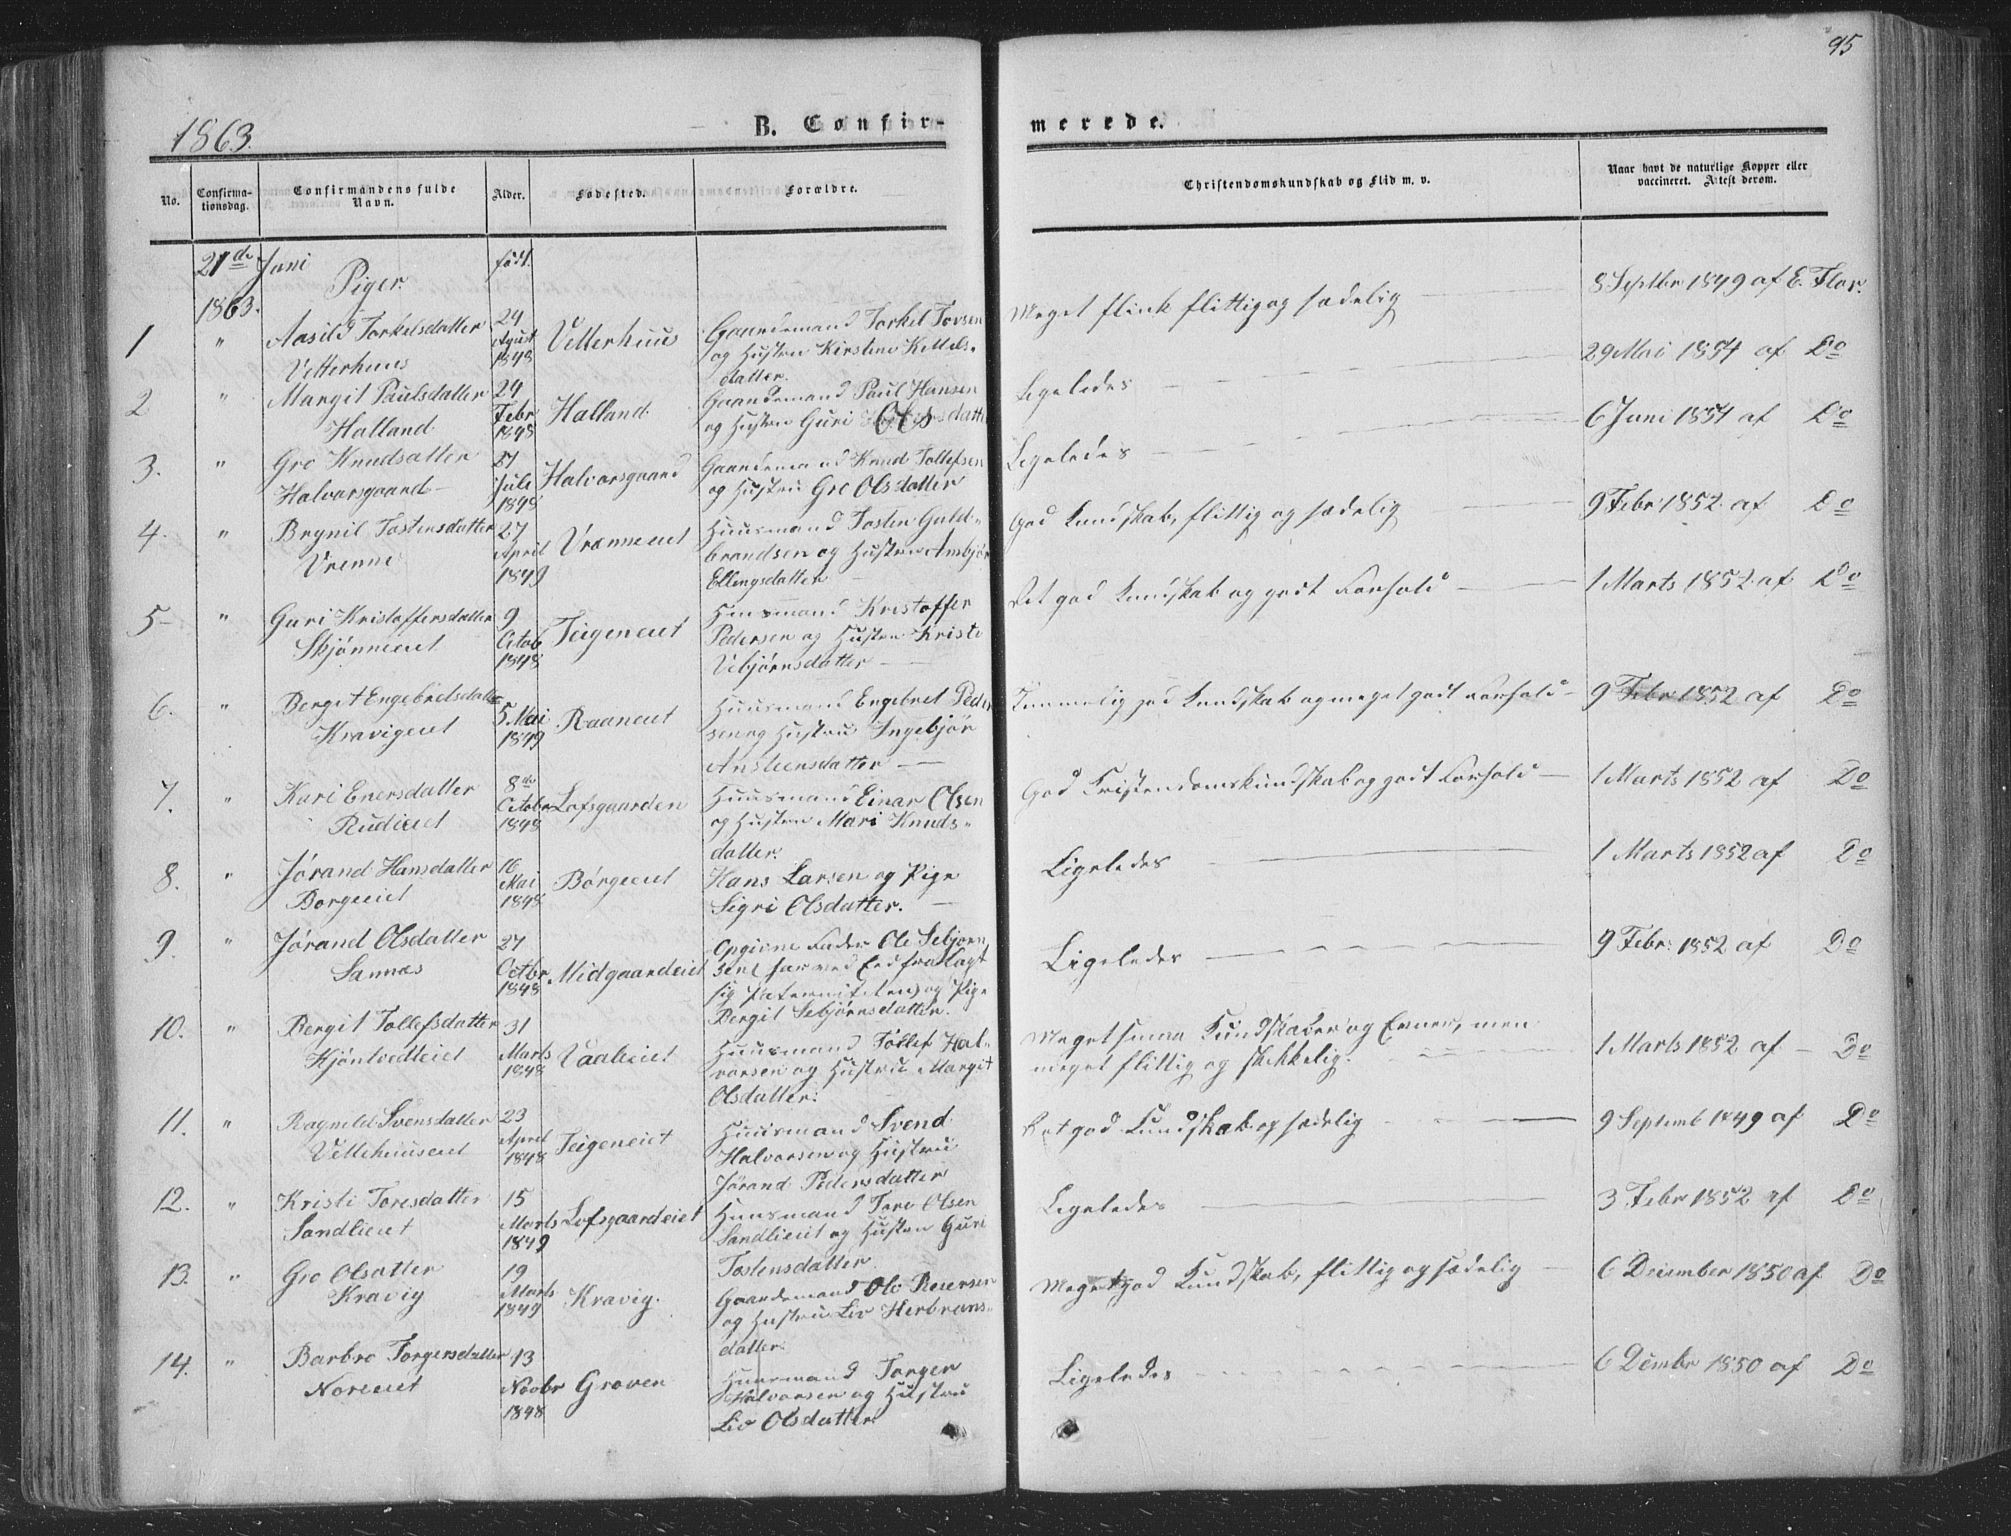 95
1863.
B. Confir-
merede.
No.
Confirma-
tionsdag.
Confirmandens fulde
Navn.
Alder.
Fødested.
Forældre.
Christendomskundskab og Flid m. v.
Naar havt de naturlige Kopper eller
vaccineret. Attest derom.
21de Juni
1863.
Piger.
født.
1 " Aasild Torkelsdatter
Vetterhuus
24
Agust
1848
Vetterhuus
Gaardemand Torkel Tovsen
og Hustru Kirstine Kittels-
datter.
Meget flink flittig og sædelig
8 Septbr 1849 af E. Flor.
2 " Margit Paulsdatter
Halland
24
Febr
1848
Halland
Gaardemand Paul Hansen
og Hustru Guri Olsdatter
Ligeledes
29 Mai 1854 af Do
3. " Gro Knudsatter
Halvorsgaard
21
Juli
1848
Halvorsgaard
Gaardemand Knud Tollefsen
og Hustru Gro Olsdatter
Ligeledes
6 Juni 1854 af Do
4. " Brynil Tostensdatter
Vrenne
27
April
1849
Vrenneeiet
Huusmand Tosten Guld-
brandsen og Hustru Ambjør
Ellingsdatter
God Kundskab, flittig og sædelig
9 Febr 1852 af Do
5 " Guri Kristoffersdatter
Skjønneeiet
9
Octob
1848
Teigeneiet
Huusmand Kristoffer
Pedersen og Hustru Kristi
Vebjørnsdatter
Ret god Kundskab og godt Forhold
1 Marts 1852 af Do
6. " Bergit Engebretsdatter
Kravigeiet
5 Mai
1849
Raaneiet
Huusmand Engebret Peder
sen og Hustru Ingebjør
Anstensdatter
Temmelig god Kundskab og meget godt Forhold
9 Febr 1852 af Do
7. " Kari Enersdatter
Rudieiet
8de
Octobr
1848
Lofsgaarden
Huusmand Einar Olsen
og Hustru Mari Knuds-
datter.
God Kristendomskundskab og godt Forhold
1 Marts 1852 af Do
8. " Jørand Hansdatter
Borgeeiet
16
Mai
1848
Børgeeiet
Hans Larsen og Pige
Sigri Olsdatter.
Ligeledes
1 Marts 1852 af Do
9. " Jørand Olsdatter
Sannæs
27
Octbr
1848
Midgaardeiet
Opgivne Fader Ole Sebjørn
sen (har ved Eed fralagt
sig Paterniteten) og Pige
Bergit Sebjørnsdatter.
Ligeledes
9 Febr: 1852 af Do
10. " Bergit Tollefsdatter
Hjøntvedteiet
31
Marts
1848
Vaalieiet
Huusmand Tollef Hal-
vorsen og Hustru Margit
Olsdatter:
Meget smaa Kundskaber og Evner, men
meget flittig og skikkelig.
1 Marts 1852 af Do
11. " Ragnild Svensdatter
Vettehuuseiet
23
April
1848
Teigeneiet
Huusmand Svend
Halvorsen og Hustru
Jørand Pedersdatter
Ret god Kundskab og sædelig
9 Septemb 1849 af Do
12. " Kristi Toresdatter
Sandlieiet
15
Marts
1849
Lofsgaardeiet
Huusmand Tore Olsen
Sandlieiet og Hustru Guri
Tostensdatter.
Ligeledes
3 Febr 1852 af Do
13. " Gro Olsatter
Kravig
19
Marts
1849
Kravig.
Gaardemand Olo Reiersen
og Hustru Liv Herbrans-
datter.
Meget god Kundskab, flittig og sædelig
6 December 1850 af Do
14. " Barbro Torgersdatter
Noreeiet
13
Novbr
1848
Groven
Huusmand Torger
Halvorsen og Hustru
Liv Olsdatter.
Ligeledes
6 Dcmbr 1850 af Do